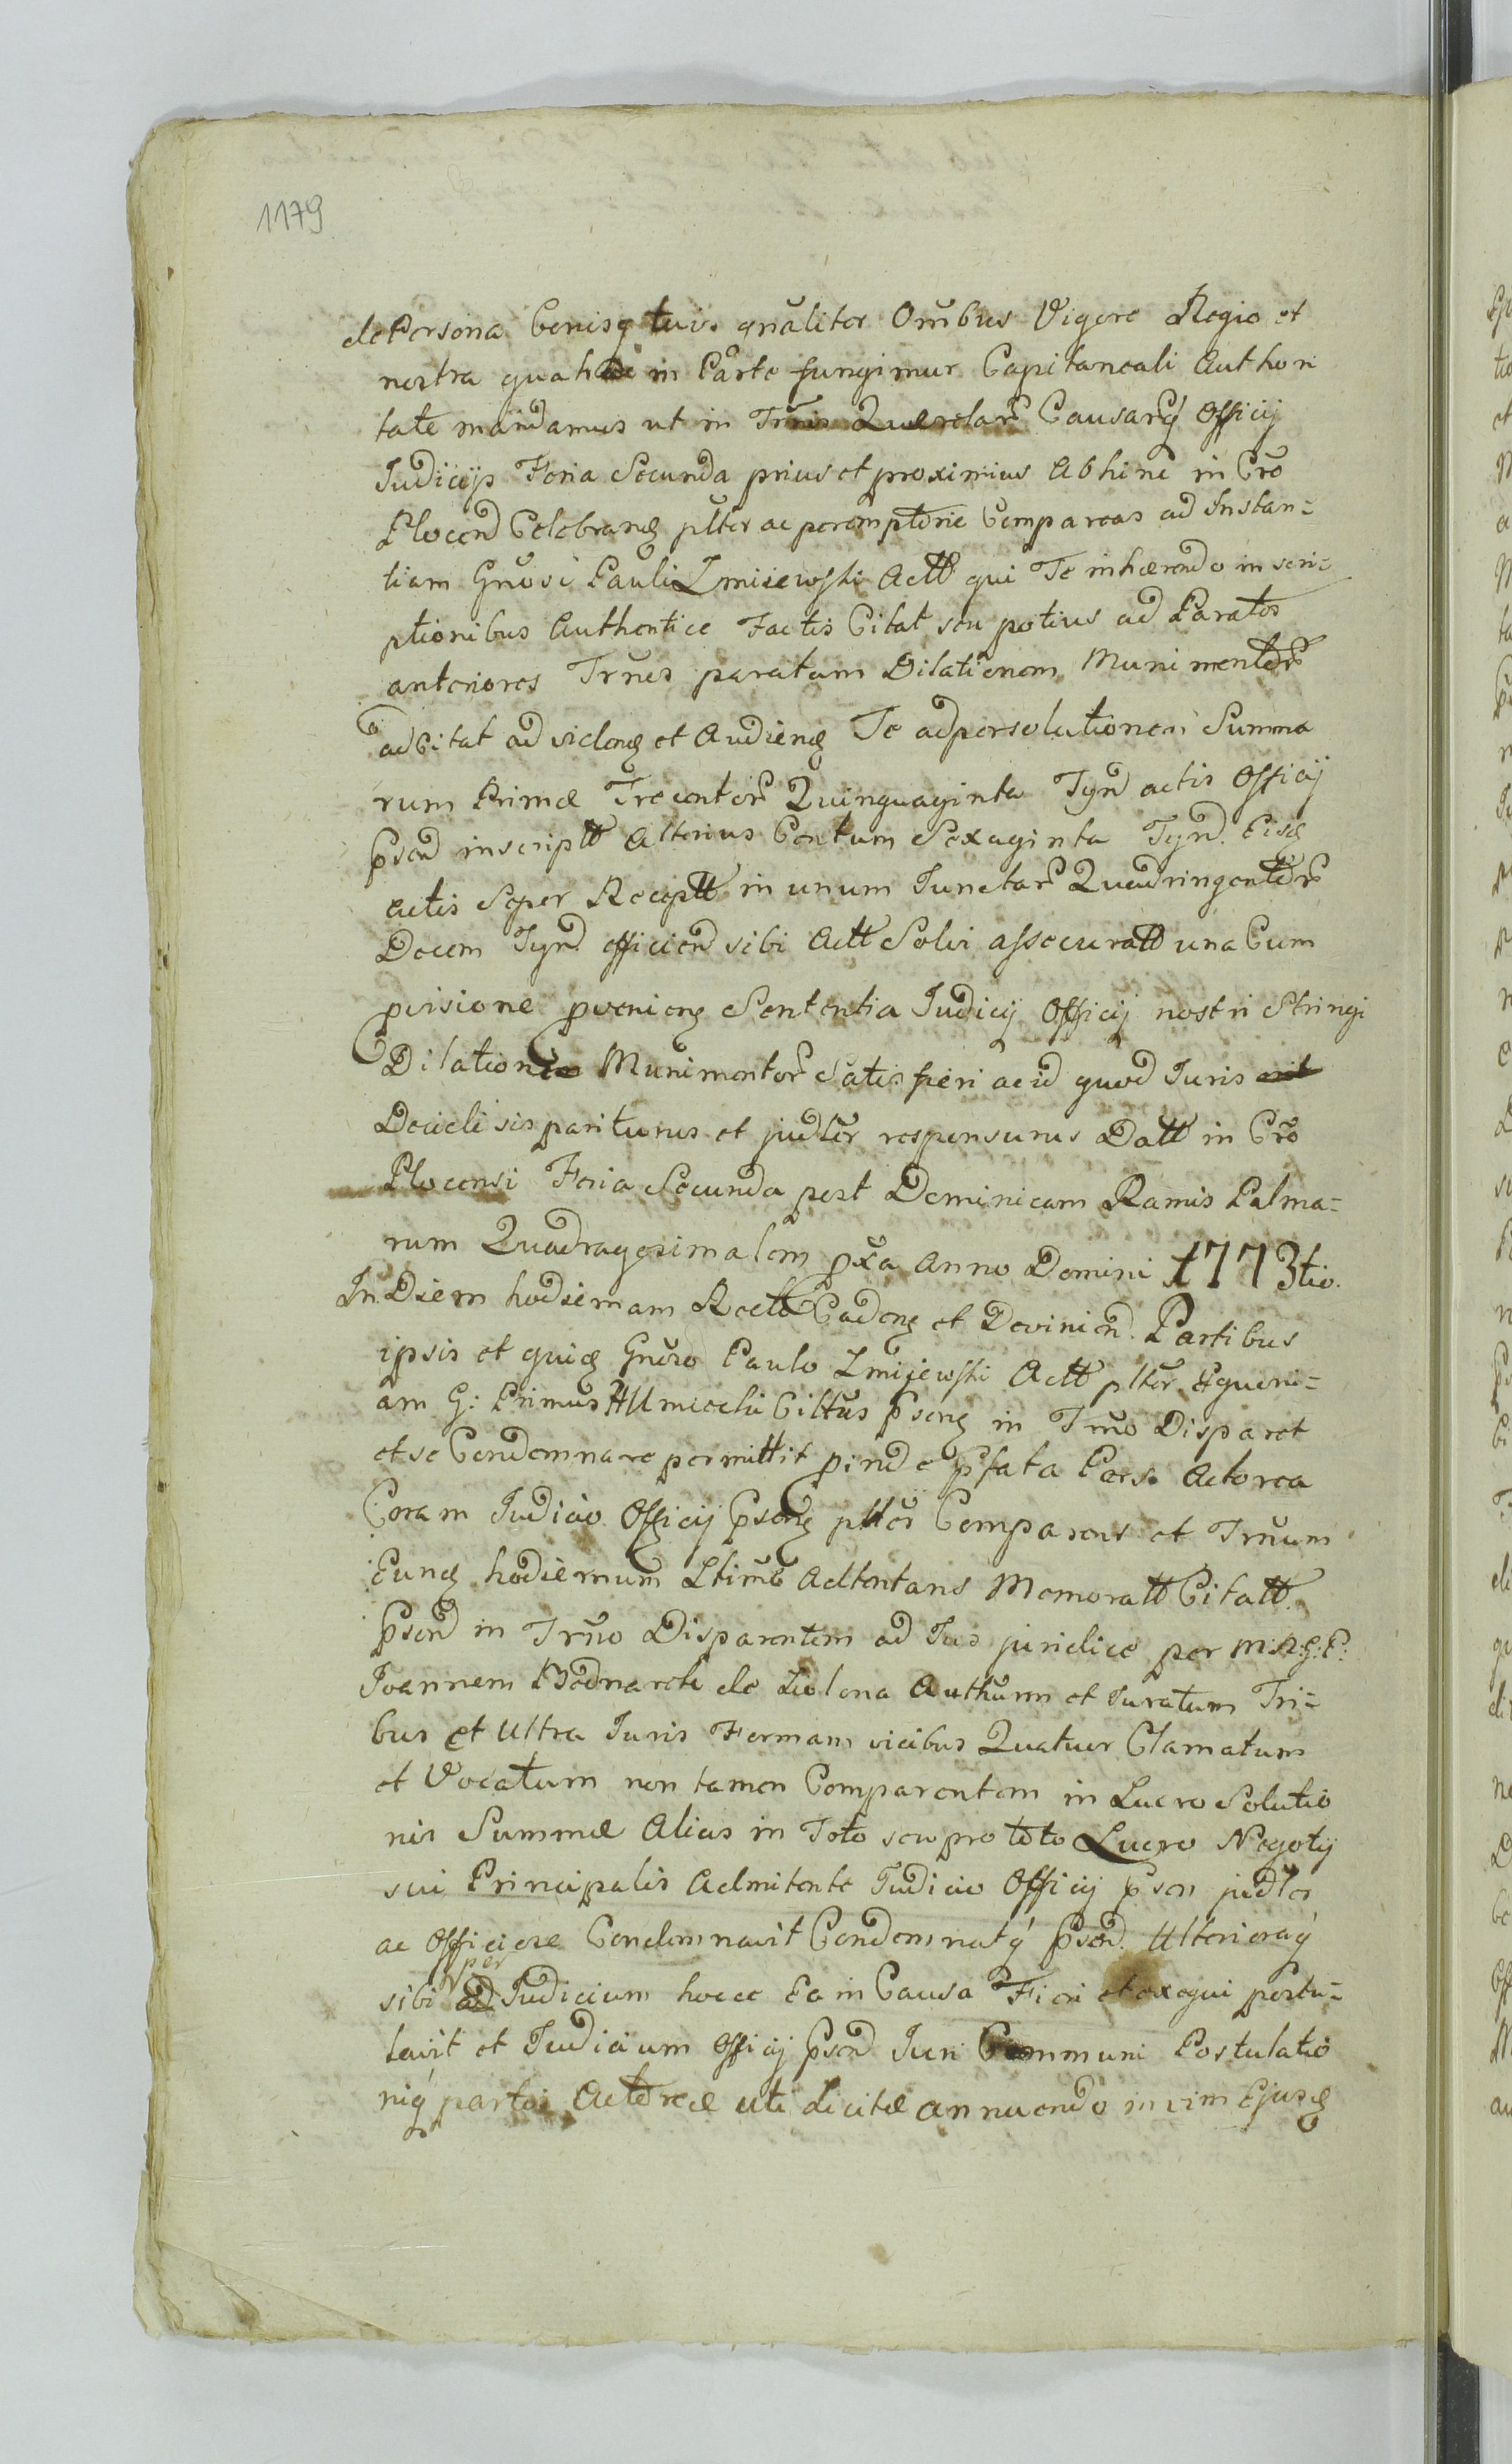 1179
de Persona Bonisq tuis gnaliter Omibus Vigore Regio et
nostra qua hac in Parte fungimur Capitaneali Authori
tate mandamus ut in Trnis Querelar Causarq Officij
Judicijs Feria Secunda prius et proximius Abhinc in Cro
Plocen Celebran plter ac peremptorie Compareas ad Instan-
tiam Gnosi Pauli Zmiiewski Actt qui Te inhærendo inscri-
ptionibus Authentice Factis Citat seu potius ad Paratos
anteriores Trnos paratam Dilationem Munimentor
adcitat ad viden et Audien Te ad persolutionem Summa
rum Primæ Trecentor Quinquaginta Tyn actis Officij
Psen inscriptt Alterius Centum Sexaginta Tyn. Eisd
actis Super Receptt in unum Junctar Quadringentor
Decem Tyn efficien sibi Actt Solvi assecuratt una Cum
pvisione pvenien Sententia Judicij Officij nostri Stringi
Dilationis Munimentor Satisfieri ac id quod Juris erit
Decidi sis pariturus et judlter responsurus Datt in Cro
Plocensi Feria Secunda post Dominicam Ramis Palma-
rum Quadragesimalem pxa Anno Domini 1773tio.
In Diem hodiernam Rectt Caden et Devinien. Partibus
ipsis et quid Gnoso Paulo Zmijewski Actt plter Equeni-
am G: Primus Citttus Psens in Trno Disparet
et se Condemnare permittit pinde Pfata Pars Actorea
Coram Judicio Officij Psen plter Comparens et Trnum
Eund hodiernum Ltime Acttentans Memoratt Citatt
Psen in Trno Disparentem ad Jus juridice per M:R:G:P:
Joannem Bednarek de Authum et Juratum Tri-
bus et Ultra Juris Formam vicibus Quatuor Clamatum
et Vocatum non tamen Comparentem in Lucro Solutio
nis Summæ Alias in Toto seu pro toto Lucro Negotij
sui Principalis Admitente Judicio Officij Psen judlter
ac Officiose Condemnavit Condemnatq Psen. Ulterioraq
per
sibi ad Judicium hocce Ea in Causa Fieri et exequi postu-
lavit et Judicium Officij Psen Juri Communi Postulatio
niq partis Actoreæ uti Licitæ annuendo in vim Ejusd